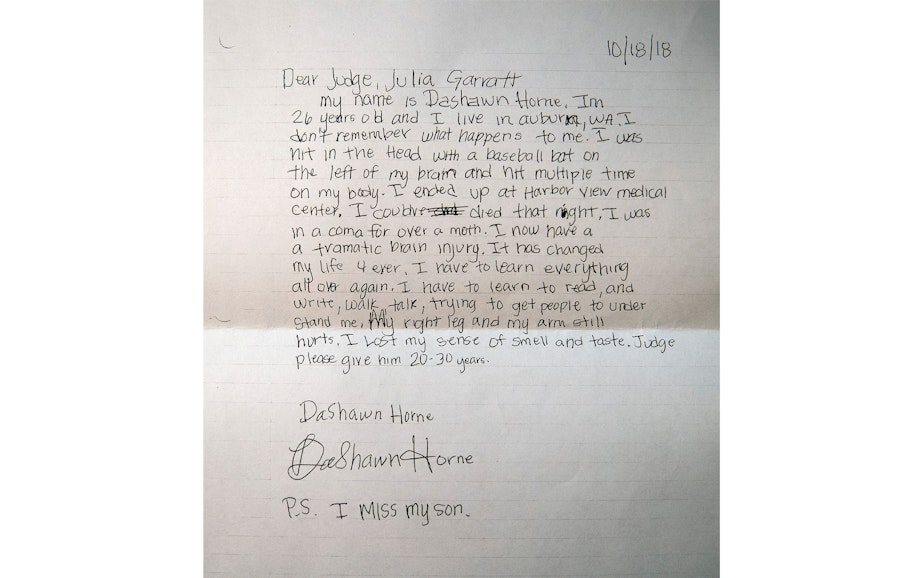 10/18/18
Dear Judge, Julia Garratt
my name is Dashawn Horne. Im
26 years old and I live in auburn, WA. I
don't remember what happens to me. I was
hit in the Head with a baseball bat on
the left of my brain and hit multiple time
on my body. I ended up at Harbor view medical
center. I couldve died that night, I was
in a coma for over a moth. I now have a
a tramatic brain injury. It has changed
my life 4 ever. I have to learn everything
all over again. I have to learn to read, and
write, walk, talk, trying to get people to under
stand me. My right leg and my arm still
hurts. I Lost my sense of smell and taste. Judge
please give him 20-30 years.
DaShawn Horne
DaShawn Horne
P.S. I MISS my son.